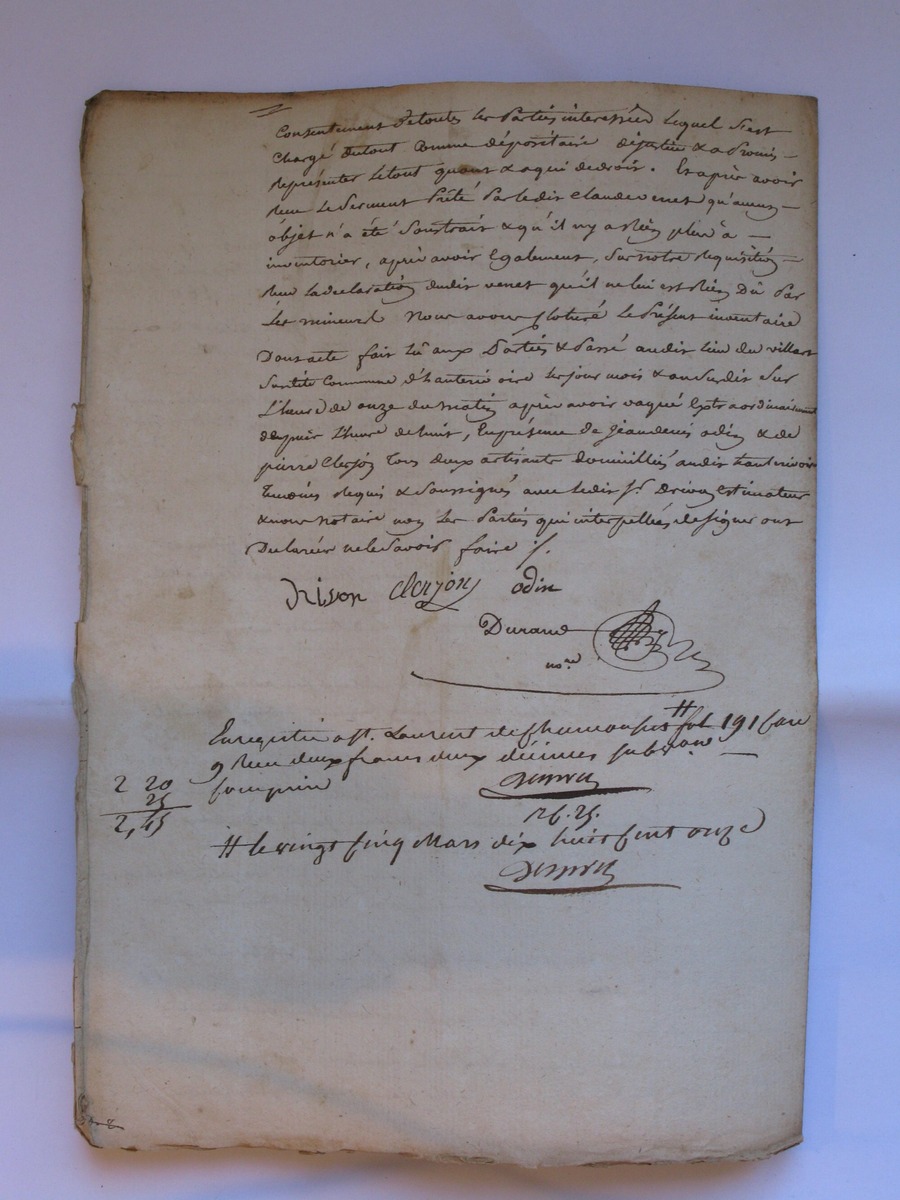 Consentement de toutes les Parties interessées lequel s'est
chargé du tout comme dépositaire de justice & a Promis
représenter le tout quant & a qui de droit. Et après avoir
reçu le Serment Prêté Par ledit Claude venet qu'aucun
objet n'a été Soustrait & qu'il n'y a Rien plus a
inventorier, après avoir Egalement, Sur notre Requisition
reçu la declaration dudit venet qu'il ne lui est Rien Dû Par
les mineurs Nous avons Cloturé le Présent inventaire
Dont acte fait lû aux Parties & Passé audit lieu du villars
Susdite Commune d'hauterivoire les jour mois & an Susdit Sur
L'heure de onze du matin après avoir vaqué Extraordinairement
depuis L'heure de huit, En présence de Jean denis odin & de
pierre Clerjon tous deux artisants domiciliés audit hauterivoire
temoins Requis & Soussignés avec ledit Sr. Drivon Estimateur
& nous notaire non les Parties qui interpellées de signer ont
Declaré ne le Savoir faire /.
Drivon Clerjon odin
Durand
nore
Enregistré a St. Laurent de Chamousset # fol 191 Case
9 Reçu deux francs deux décimes subvon
Comprise
2 20
25
2,45
26.25.
# le vingt Cinq Mars dix huit Cent onze